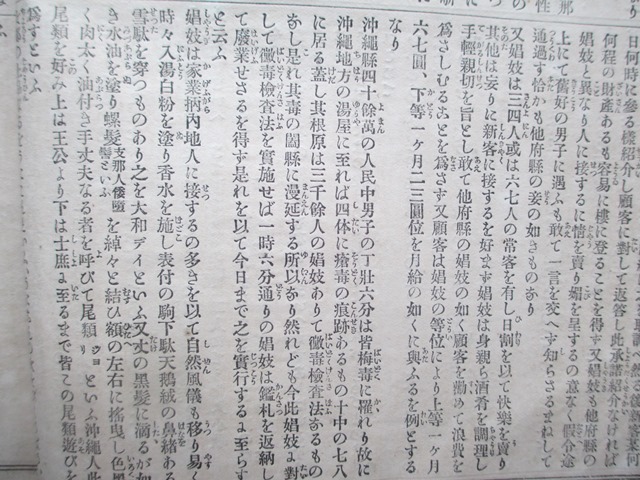 日何時に參る樣紹介し顧客に對して返答し此承諾紹介なければ
何程の財產あるも容易に樓に登ることを得す又娼妓も他府縣の
娼妓と異なり人に接するに情を賣り媚を呈するの意なく假令途
上にて舊好の男子に遇ふも敢て一言を交へす知らさるまねして
通過す恰かも他府縣の妾の如きものあり
又娼妓は三四人或は六七人の常客を有し日割を以て快樂を賣り
其他は妄りに新客に接するを好ます娼妓は身親ら酒肴を調理し
手輕親切を旨とし敢て他府縣の娼妓の如く顧客を勸めて浪費を
爲さしむることを爲さす又顧客は娼妓の等位により上等一ヶ月
六七圓、下等一ヶ月二三圓位を月給の如くに與ふるを例とする
なり
沖繩縣四十餘萬の人民中男子の丁壯六分は皆梅毒に罹れり故に
沖繩地方の湯屋に至れば四体に瘡毒の痕跡あるもの十中の七八
に居る蓋し其根原は三千餘人の娼妓ありて黴毒檢査法なるもの
なし是れ其毒の闔縣に漫延する所以なり然れども今此娼妓に對
して黴毒檢査法を實施せば一時六分通りの娼妓は鑑札を返納し
て廢業せさるを得す是れを以て今日まで之を實行するに至らす
と云ふ
娼妓は家業柄內地人に接するの多きを以て自然風儀も移り易く
時々入湯白粉を塗り香水を施し表付の駒下駄天鵞絨の鼻緒ある
雪駄を穿つものあり之を大和デイといふ又丈の黑髮に滴るが如
き水油を塗り螺髮支那人倭䰂䰂といふを綽々と結ひ額の左右に搖曳し色
く肉太く油付き手丈夫なる者を呼びて尾類ヅリといふ沖繩人此
尾類を好み上は王公より下は士庶に至るまで皆この尾類遊びを
爲すといふ